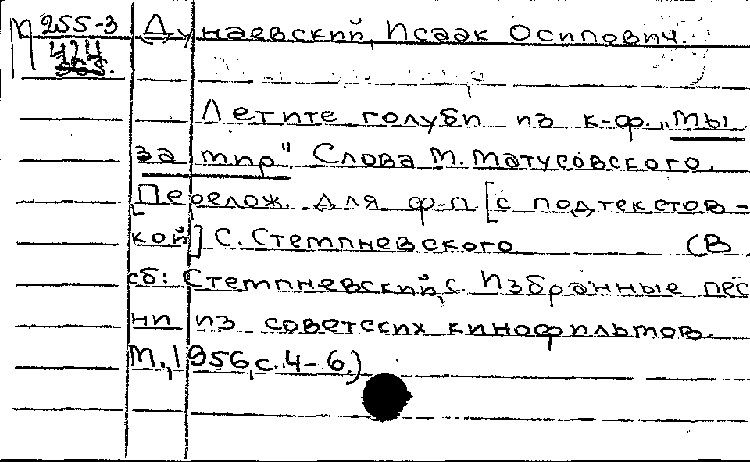 М 255-3 Дунаевский, Исаак Осипович.
424
Летите голуби из к-ф. „Мы
за мир" Слова М. Матусовского.
[Перелож. для ф-п [с подтекстов-
кой] С. Стемпневского (В
сб: Стемпневский, С. Избранные пес
ни из советских кинофильмов.
М., 1956, с. 4-6.)